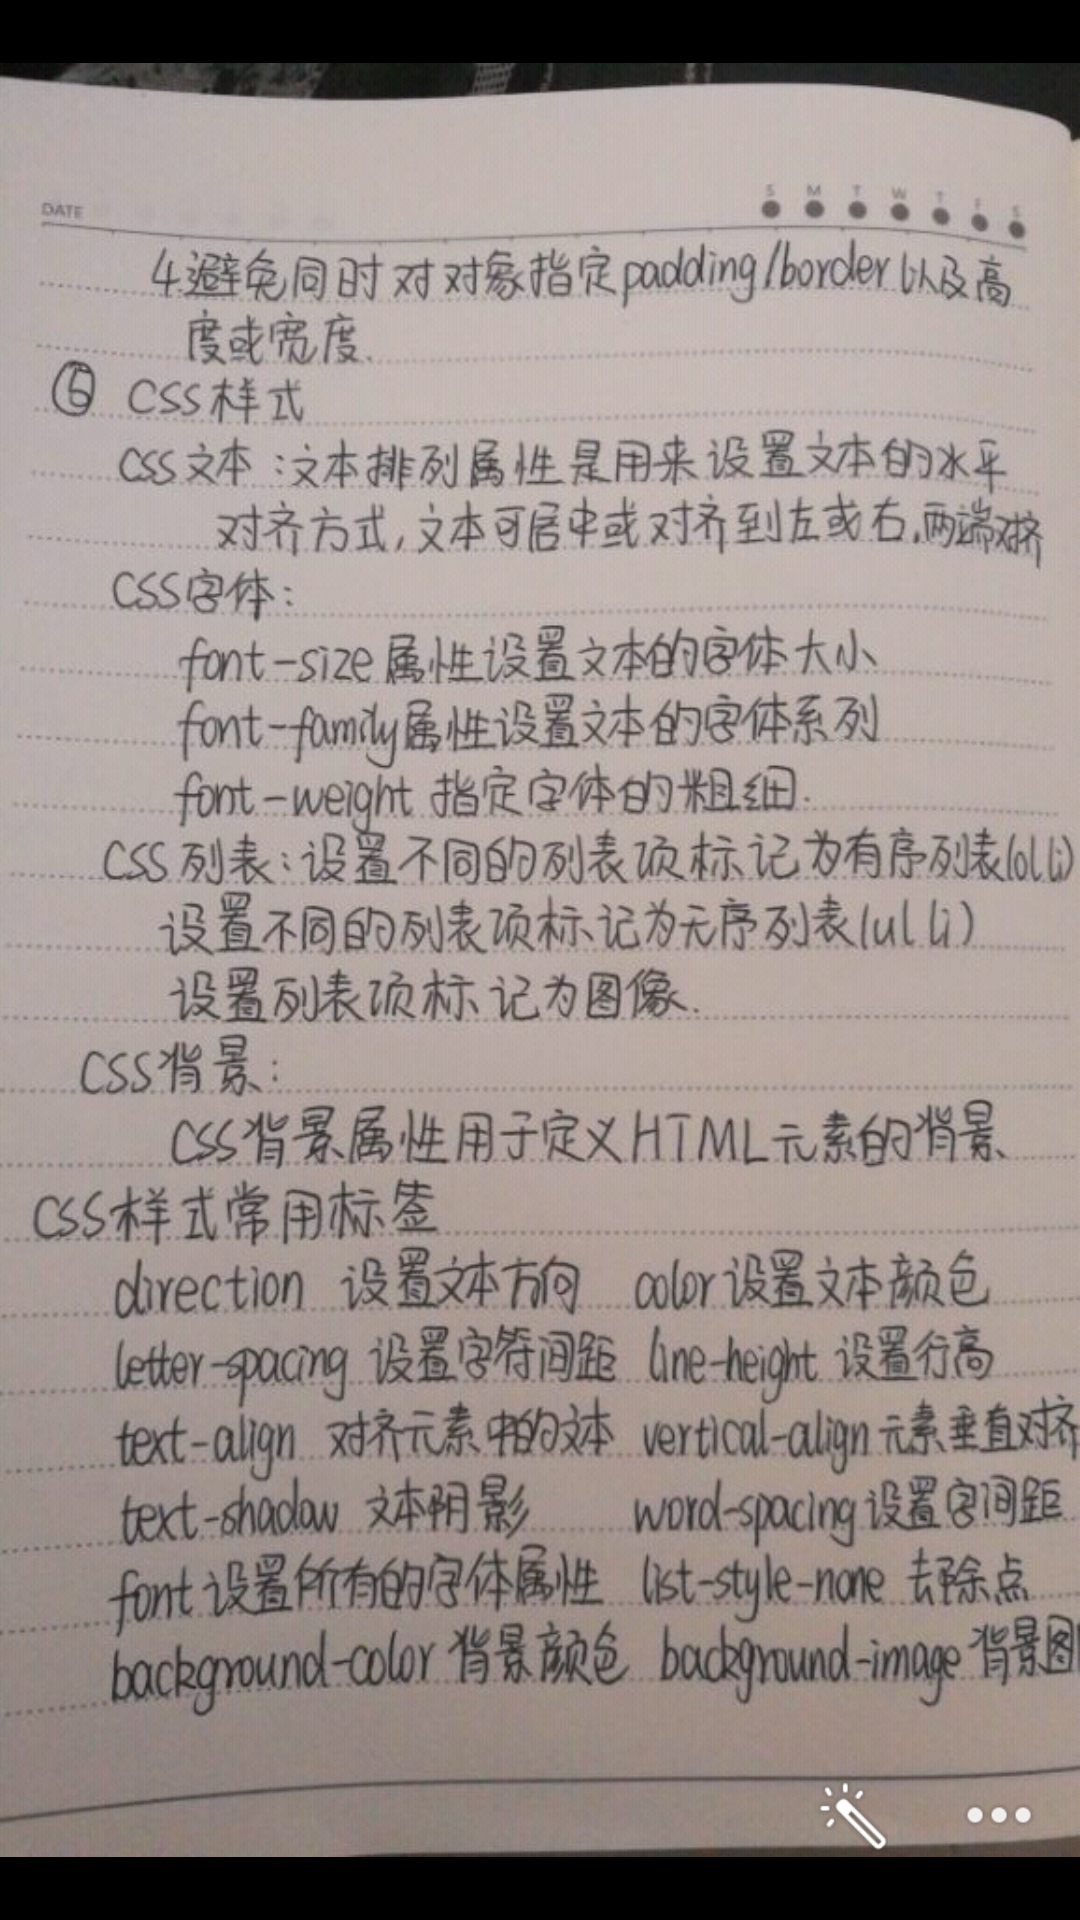 DATE
S M T W T F S
4避免同时对对象指定padding/border以及高
度或宽度.
⑥ CSS样式
CSS文本:文本排列属性是用来设置文本的水平
对齐方式,文本可居中或对齐到左或右,两端对齐
CSS字体:
font-size属性设置文本的字体大小
font-family属性设置文本的字体系列
font-weight 指定字体的粗细.
CSS列表:设置不同的列表项标记为有序列表(ol li)
设置不同的列表项标记为无序列表(ul li)
设置列表项标记为图像.
CSS背景:
CSS背景属性用于定义HTML元素的背景
CSS样式常用标签
direction 设置文本方向 color设置文本颜色
letter-spacing 设置字符间距 line-height 设置行高
text-align 对齐元素中的文本 vertical-align元素垂直对齐
text-shadow 文本阴影 word-spacing设置字间距
font设置所有的字体属性 list-style-none 去除点
background-color 背景颜色 background-image背景图